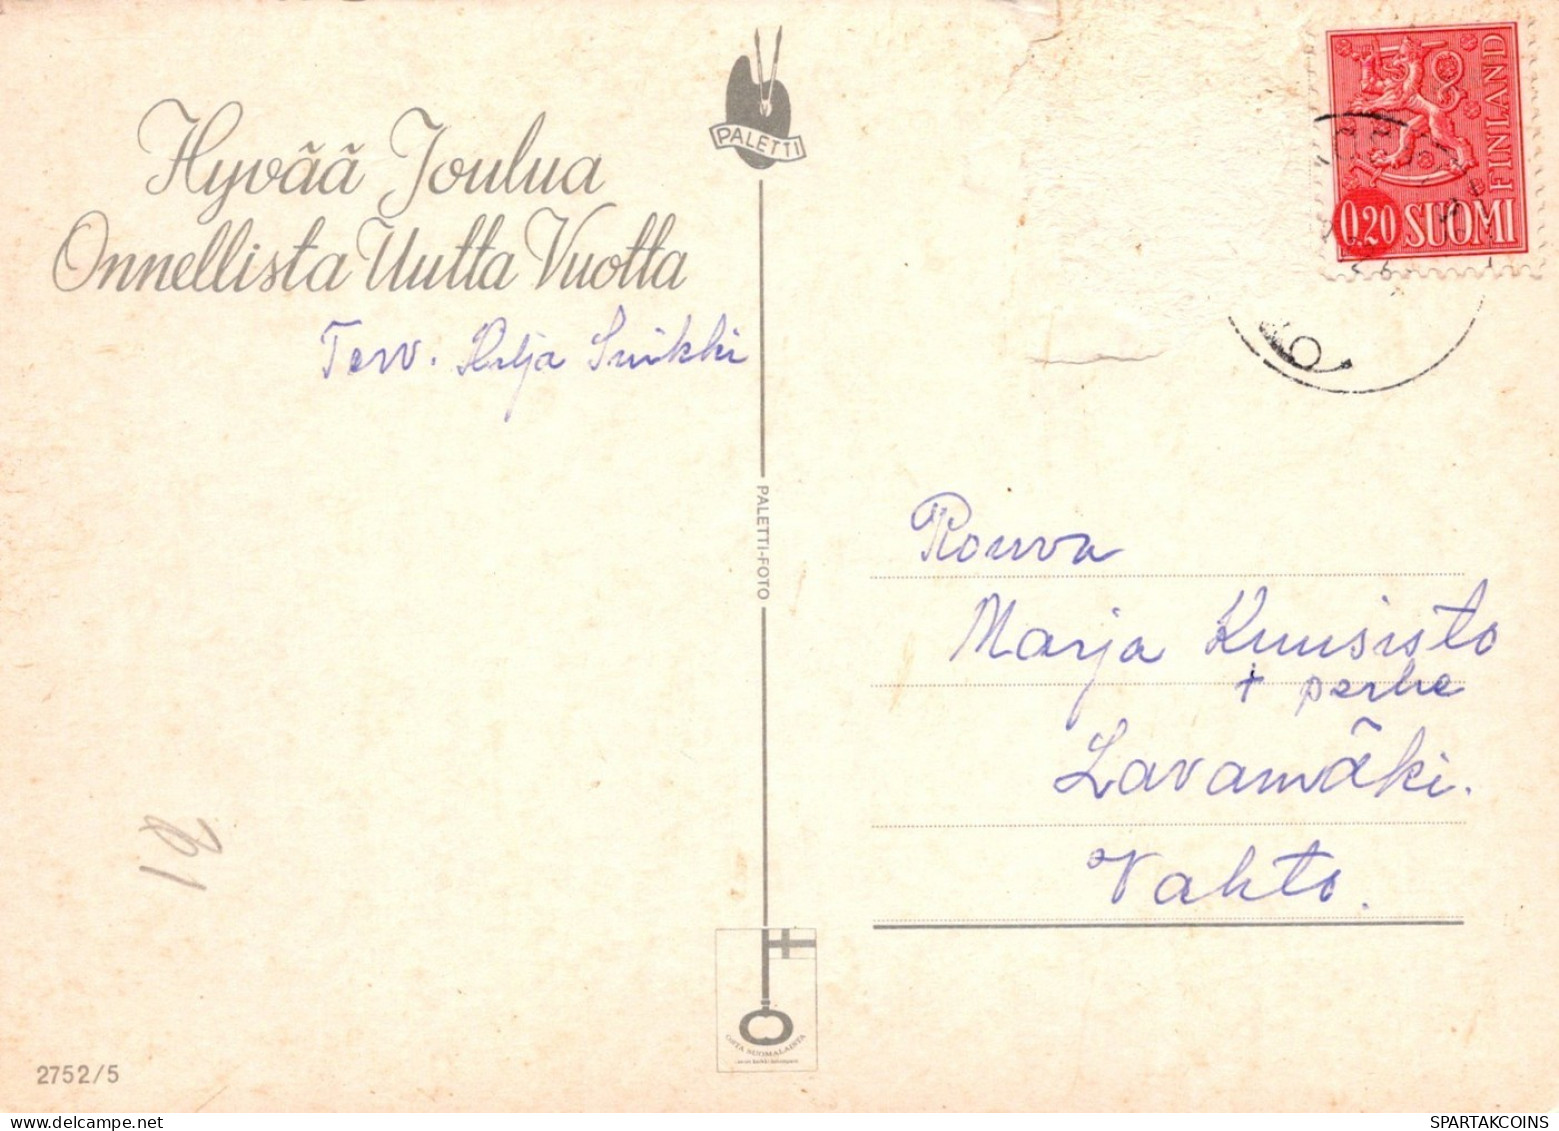 Hyvää Joulua
Onnellista Uutta Vuotta
Terv. Hilja Suikki
PALETTI
PALETTI-FOTO
FINLAND
0,20 SUOMI
Rouva
Marja Kuusisto
+ perhe
Lavamäki.
Vahto.
OSTA SUOMALAISTA
2752/5
delcampe.net
SPARTAKCOINS